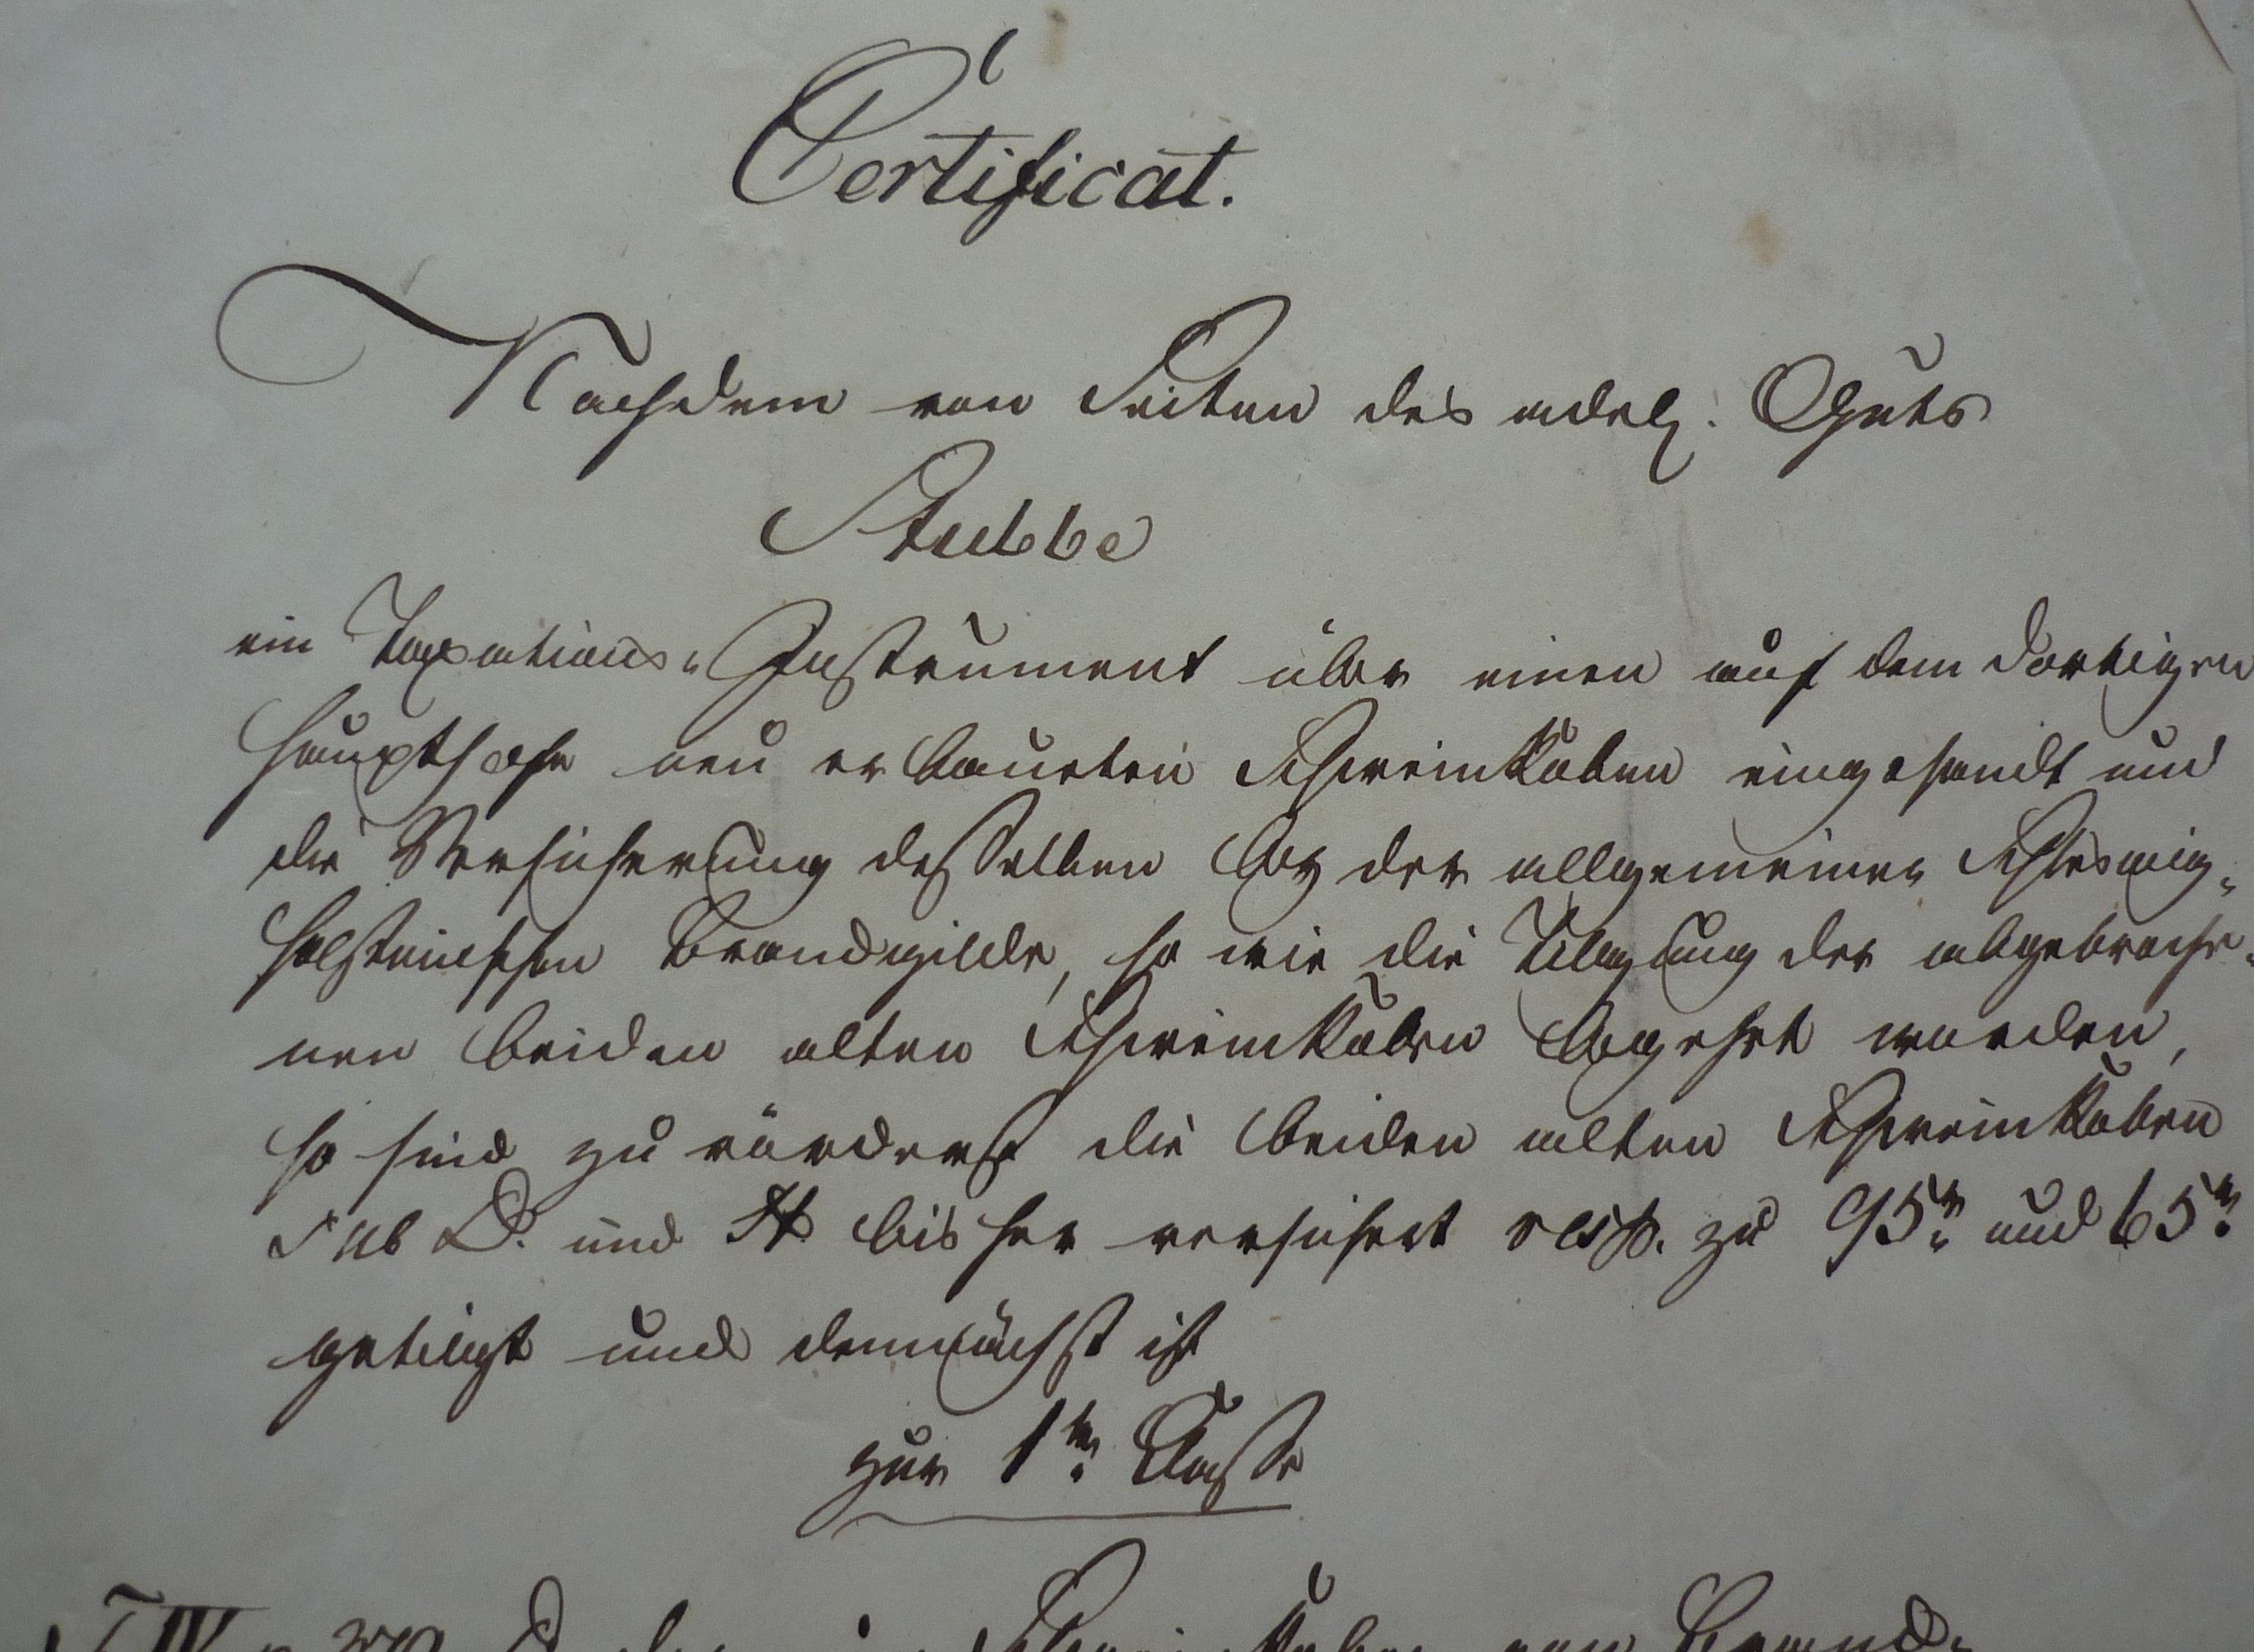 Certificat.
Nachdem von Seiten des adel. Guts
Stubbe
ein Taxations-Instrument über einen auf dem dortigen
Haupthofe neu erbaueten Schweinkoben eingesandt und
die Versicherung desselben bey der allgemeinen Schleswig-
Holsteinischen Brandgilde, so wie die Tilgung der abgebroche-
nen beiden alten Schweinkoben begehrt worden,
so sind zuvörderst die beiden alten Schweinkoben
sub D. und H bisher versichert resp. zu 95 und 65
getilgt und demnächst ist
zur 1ten Classe